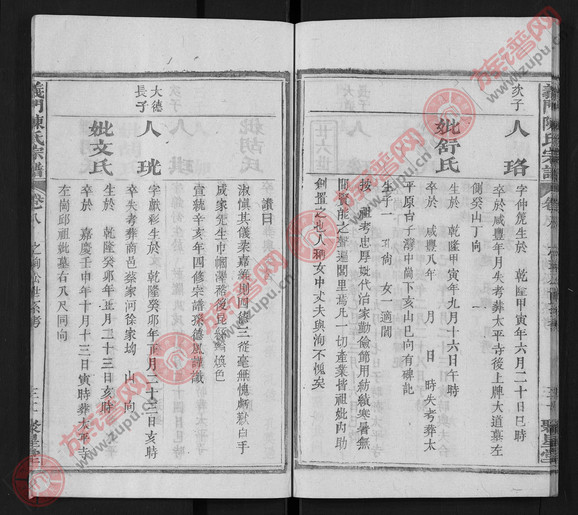 義門陳氏宗譜
次子
人珞
字仲堯生於 乾隆甲寅年六月二十日巳時
卒於咸豐年月失考葬太平寺後上牌大道墓左
側癸山丁向
妣舒氏
生於 乾隆甲寅年九月十六日午時
卒於 咸豐八年 月 日 時失考葬太
平原台子灣中崗下亥山巳向有碑記
生子一 人 女一適闕
按 祖考忠厚妣代治家勤儉節用紡績寒暑無
間賢能之聲遍閭里焉凡一切產業皆祖妣內助
創置之也人稱女中丈夫與洵不愧矣
廿六世
讚曰
淑慎其儀柔嘉維則四德三從毫無愧
成家先生巾幗澤
宣統辛亥年四修宗譜孫德
大德長子
人珖
字獻彩生於 乾隆癸卯年正月二十三日亥時
卒失考葬商邑蔡家河徐家坳 山 向
妣文氏
生於 乾隆癸卯年正月二十三日亥時
卒於 嘉慶壬申年十月十三日寅時葬太平寺
左崗邱祖妣墓右八尺同向
義門陳氏宗譜
卷八
聚星堂
族谱网
www.zupu.cn